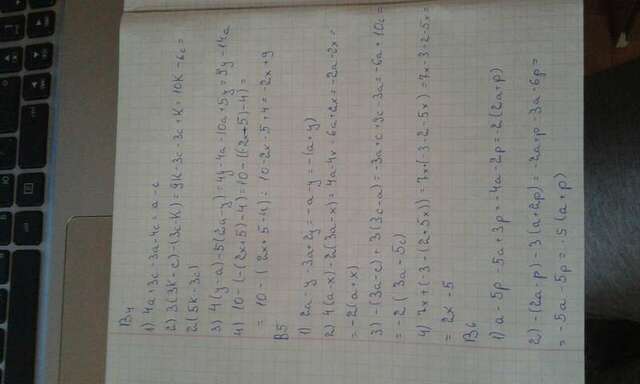 В4
1) 4a+3c-3a-4c=a-c
2) 3(3к-c)-(3c-к)=9к-3c-3c+к=10к-6c=
2(5к-3c)
3) 4(y-a)-5(2a-y)=4y-4a-10a+5y=9y-14a
4) 10-(-(2x+5)-4)=10-((-2x+5)-4)=
=10-(2x+5-4)=10-2x-5+4=-2x+9
В5
1) 2a-y-3a+2y=-a-y=-(a+y)
2) 4(a-x)-2(3a-x)=4a-4x-6a+2x=-2a-2x=
=-2(a+x)
3) -(3a-c)+3(3c-a)=-3a+c+9c-3a=-6a+10c=
=-2(3a+5c)
4) 7x+(-3-(2+5x))=7x+(-3-2-5x)=7x-3-2-5x=
=2x-5
В6
1) a-5p-5a+3p=-4a-2p=-2(2a+p)
2) -(2a-p)-3(a+2p)=-2a+p-3a-6p=
=-5a-5p=-5(a+p)